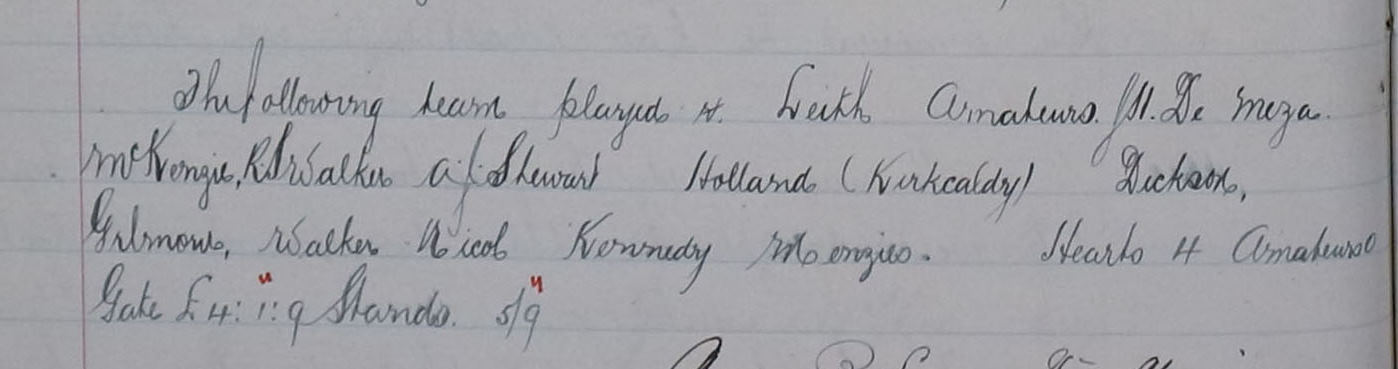 The following team played v. Leith Amateurs. De Meza.
McKenzie, R. Walker Stewart Holland (Kirkcaldy) Dickson,
Gilmour, Walker Nicol Kennedy Menzies. Hearts 4 Amateurs 0
Gate £4:1:9 Stands. 5/9